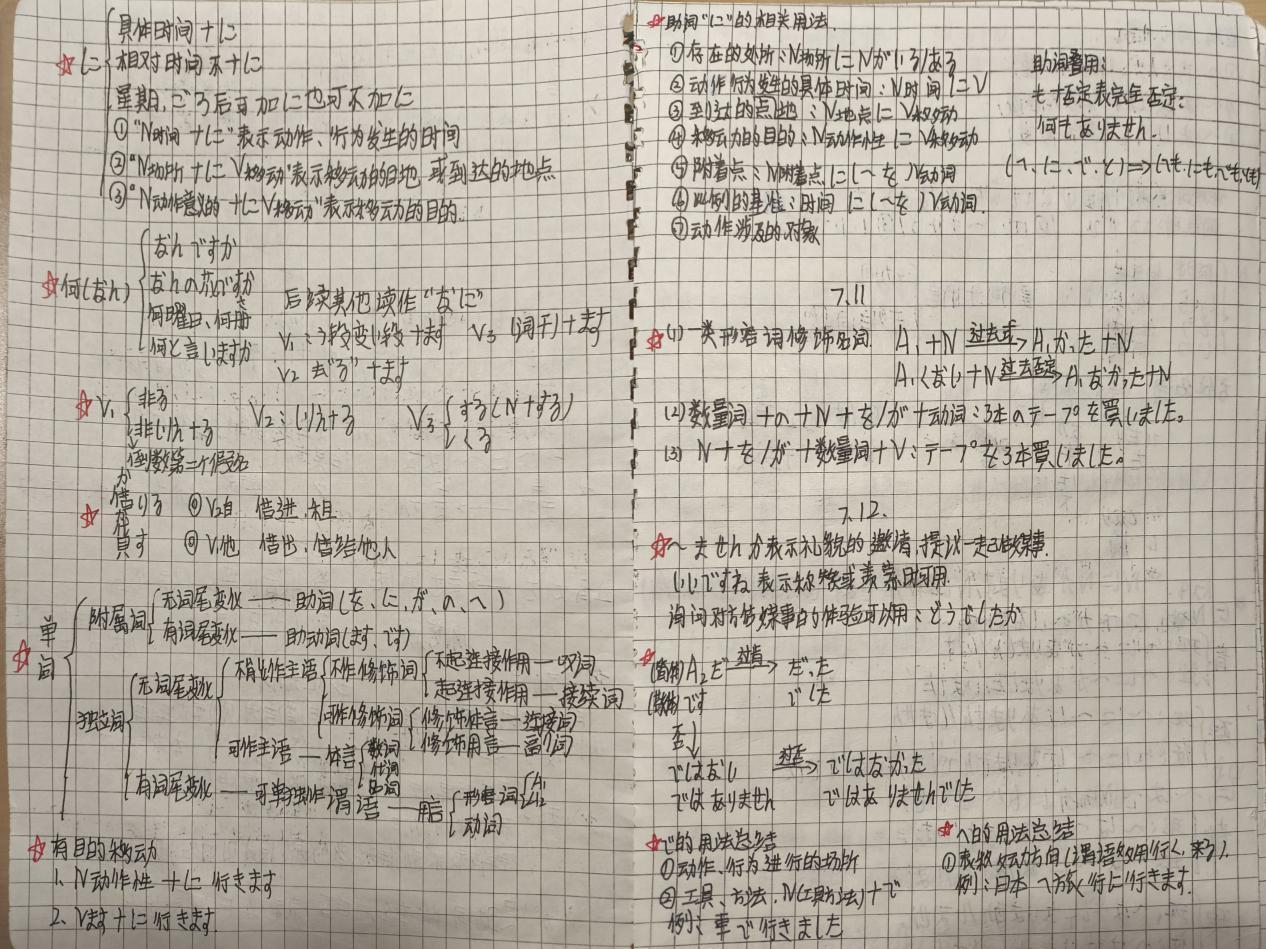 ☆に
具体时间+に
相对时间不+に
星期、ごろ后可加に也可不加に
①“N时间+に”表示动作、行为发生的时间
②“N场所+に V移动”表示移动的目地或到达的地点
③“N动作意义的+に V移动”表示移动的目的.
☆何(なん)
なんですか
なんの花ですか
何曜日、何冊
何と言いますか
后续其他读作“なに”
V₁:う段变い段+ます V₃(词干)+ます
V₂ 去“る”+ます
☆V₁
非る
非い/え+る
倒数第二个假名
V₂:い/え+る
V₃ する(N+する)
くる
☆
か
借りる ⓪ V₂自 借进、租
貸す ⓪ V₁他 借出、借给他人
☆单词
附属词
无词尾变化——助词(を、に、が、の、へ)
有词尾变化——助动词(ます、です)
独立词
无词尾变化
不能作主语
不作修饰词
不起连接作用—叹词
起连接作用—接续词
可作修饰词
修饰体言—连接词
修饰用言—副词
可作主语—体言
数词
代词
名词
有词尾变化—可单独作谓语—用言
形容词 A₁ A₂
动词
☆有目的移动
1. N动作性+に行きます
2. Vます+に行きます.
☆助词“に”的相关用法.
①存在的处所:N场所にNがいる/ある
②动作行为发生的具体时间:N时间にV
③到达的点地:N地点にV移动
④移动的目的:N动作性にV移动
⑤附着点:N附着点に(〜を)V动词
⑥比例的基准:时间に(〜を)V动词.
⑦动作涉及的对象
助词叠用:
も+否定表完全否定:
何もありません.
(へ、に、で、と)⇒(へも、にも、でも、とも)
7.11
☆(1)一类形容词修饰名词 A₁+N 过去式→ A₁かった+N
A₁くない+N 过去否定→ A₁なかった+N
(2)数量词+の+N+を/が+动词:3本のテープを買いました。
(3) N+を/が+数量词+V:テープを3本買いました。
7.12.
☆〜ませんか表示礼貌的邀请、提议一起做某事.
いいですね表示称赞或羡慕时可用.
询问对方做某事的体验可以用:どうでしたか
☆(简体)A₂だ 过肯→ だった
(敬体)です でした
否↓
ではない 过否→ ではなかった
ではありません ではありませんでした
☆で的用法总结
①动作、行为进行的场所
②工具、方法.N(工具方法)+で
例:車で行きました
☆へ的用法总结
①表移动方向(谓语多用行く、来る).
例:日本へ旅行に行きます.